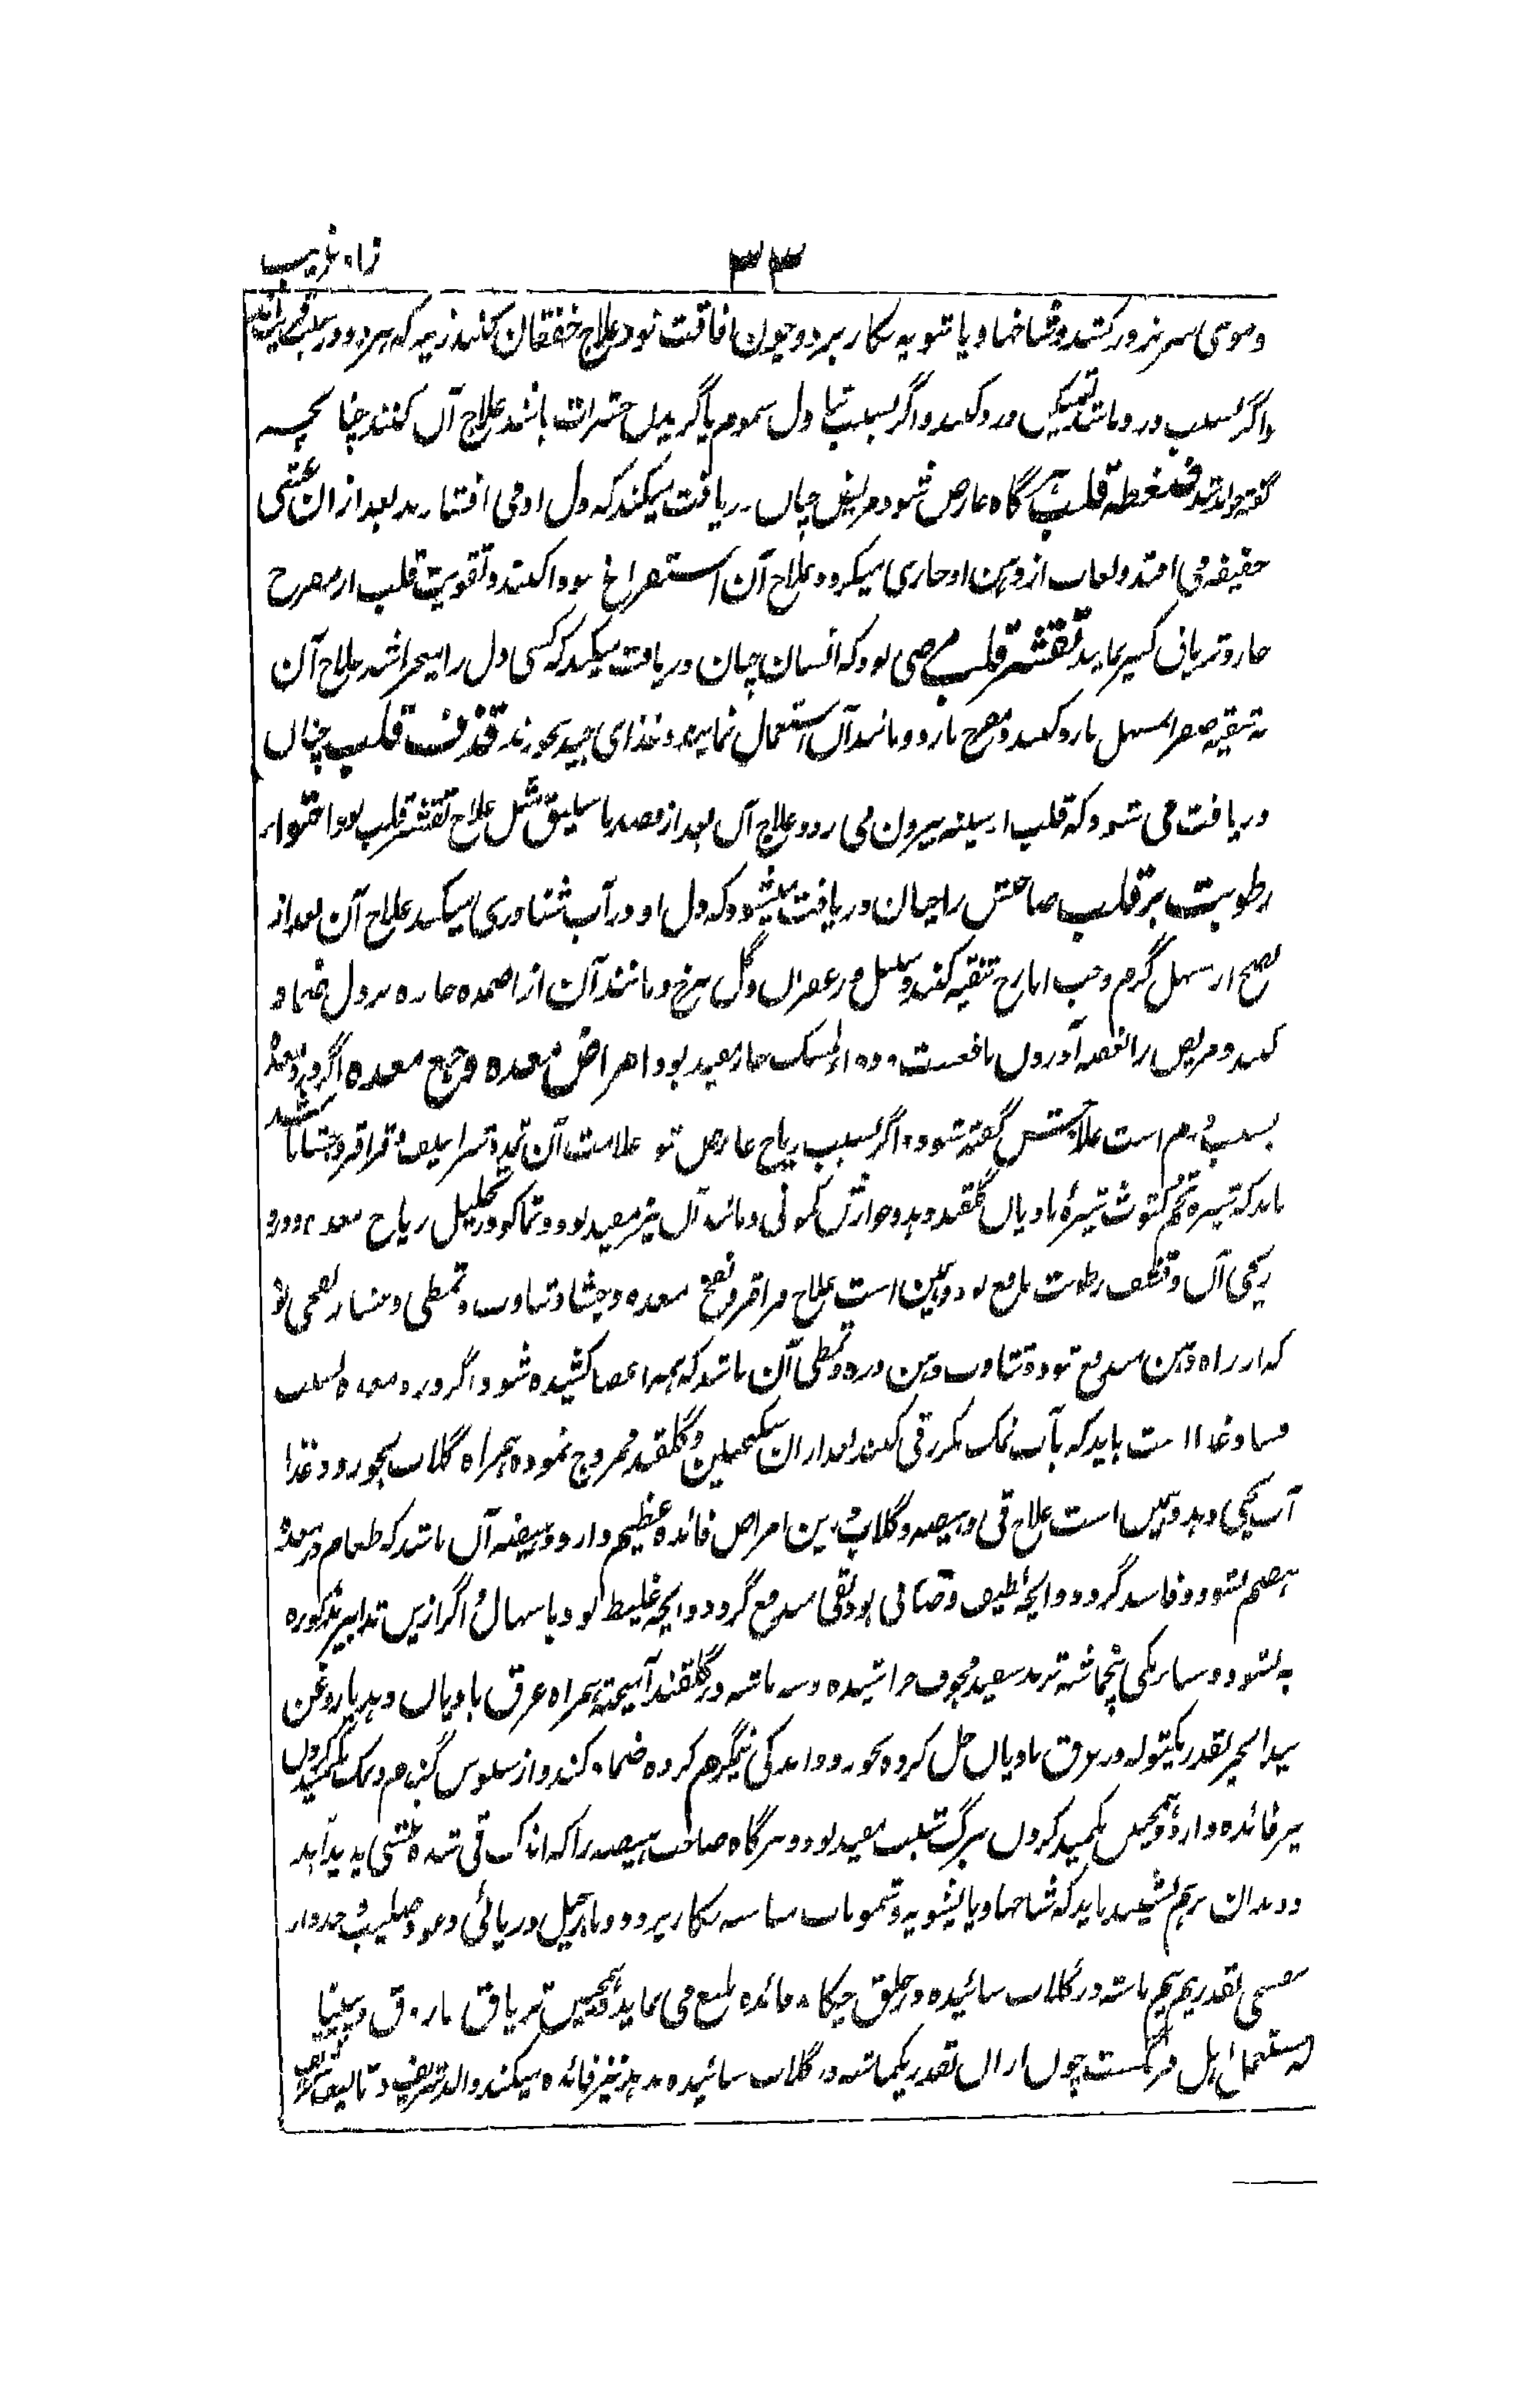 زاد غریب
۳۳
وموی سر بزور کشند و شاخها و پا شویه بکار برد و چون افاقت شود علاج خفقان کنند زیرا که هر دو در سبب
واگر بسبب درد باشد تسکین درد کنند واگر بسبب تناول سموم یا گزیدن حشرات باشد علاج آن کنند چنانچه
گفته خواهد شد ضغطه قلب گاه عارض شود مریض چنان دریافت میکند که دل او می افشارند بعد ازان غشی
خفیفه می افتد ولعاب از دهن او جاری میگردد علاج آن استفراغ سودا کنند و تقویت قلب از مفرح
حار و تریاق کبیر نماید تقشر قلب مرضی بود که انسان چنان دریافت میکند که کسی دل را میخراشد علاج آن
تنقیه صفرا بمسهل بارد کنند و مفرح بارد و مانند آن استعمال نمایند و غذای جید بخورند قذف قلب چنان
دریافت می شود که قلب از سینه بیرون می رود و علاج آن بعد از فصد باسلیق مثل علاج تقشر قلب بود احتواء
رطوبت بر قلب صاحبش را چنان دریافت میشود که دل او در آب شناوری میکند علاج آن بعد از
نضج از مسهل گرم و حب ایارج تنقیه کنند و سنبل و زعفران و گل سرخ و مانند آن از اضمده حاره بر دل ضماد
کنند و مریض را بغصه آوردن نافعست و دواء المسک حار مفید بود امراض معده وجع معده اگر درد معده
بسبب ورم است علاجش گفته شود و اگر بسبب ریاح عارض شود علامت آن تمدد شراسیف و قراقر و جشا باشد
باید که شیره تخم کثوث شیرهٔ بادیان گلقند دهد و جوارش کمونی و مانند آن نیز مفید بود و تنباکو در تحلیل ریاح معده و درد
ریحی آن و تنشف رطوبت نافع بود و همین است علاج قراقر و نفخ معده و جشا و تثاوب و تمطی و جشا ریحی بود
که از راه دهن مندفع شود و تثاوب دهن دره و تمطی آن باشد که همه اعضا کشیده شود و اگر درد معده بسبب
فساد غذا است باید که بآب نمک مکرر قی کنند بعد ازان سکنجبین و گلقند ممزوج نموده همراه گلاب بخورد و غذا
آب یخنی دهد و همین است علاج قی و هیضه و گلاب درین امراض فائده عظیم دارد و هیضه آن باشد که طعام در معده
هضم نشود و فاسد گردد و آنچه لطیف و صافی بود بقی مندفع گردد و آنچه غلیظ بود باسهال و اگر ازین تدابیر مذکوره
به نشود و سنامکی پنجماشه تربد سفید مجوف خراشیده سه ماشه در گلقند آمیخته همراه عرق بادیان دهد یا روغن
بیدانجیر بقدر یکتوله در عرق بادیان حل کرده بخورد و اندکی نیمگرم کرده ضماد کنند و از سبوس گندم و نمک تکمید کردن
نیز فائده دارد و همچنین تکمید کردن ببرگ شبت مفید بود و هرگاه صاحب هیضه را که اندک قی شده غشی پدید آید
و دندان بر هم نشیند باید که شاخها و پاشویه و شمومات مناسبه بکار برد و نارجیل دریائی و عود صلیب و جدوار
بقدر نیم نیم ماشه در گلاب سائیده در حلق چکاند فائده بلیغ می نماید و همچنین تریاق فاروق و
مستعمل اهل فرنگست چون ازان بقدر یکماشه در گلاب سائیده بدهد نیز فائده میکند و والد شریف در تالیف